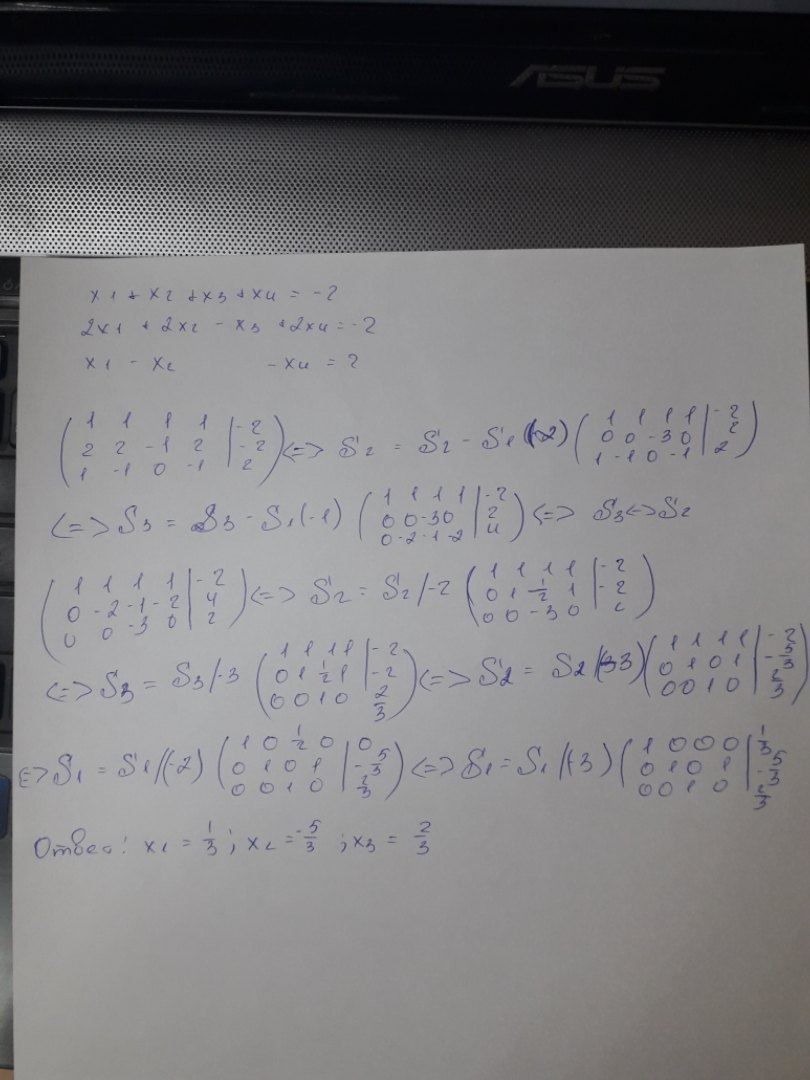 ASUS
x1 + x2 + x3 + x4 = -2
2x1 + 2x2 - x3 + 2x4 = -2
x1 - x2 - x4 = 2
1 1 1 1 | -2
2 2 -1 2 | -2 <=> S2 = S2 - S1 (-2)
1 -1 0 -1 | 2
1 1 1 1 | -2
0 0 -3 0 | 2
1 -1 0 -1 | 2
<=> S3 = S3 - S1 (-1)
1 1 1 1 | -2
0 0 -3 0 | 2
0 -2 -1 -2 | 4
<=> S3 <=> S2
1 1 1 1 | -2
0 -2 -1 -2 | 4
0 0 -3 0 | 2
<=> S2 = S2 /-2
1 1 1 1 | -2
0 1 1/2 1 | -2
0 0 -3 0 |
<=> S3 = S3 /-3
1 1 1 1 | -2
0 1 1/2 1 | -2
0 0 1 0 | 2/3
<=> S2 = S2
1 1 1 1 | -2
0 1 0 1 | -5/3
0 0 1 0 | 2/3
=> S1 = S1 /(-2)
1 0 1/2 0 | 0
0 1 0 1 | -5/3
0 0 1 0 | 2/3
<=> S1 = S1 /(-3)
1 0 0 0 | 1/3
0 1 0 1 | -5/3
0 0 1 0 | 2/3
Ответ: x1 = 1/3 ; x2 = -5/3 ; x3 = 2/3